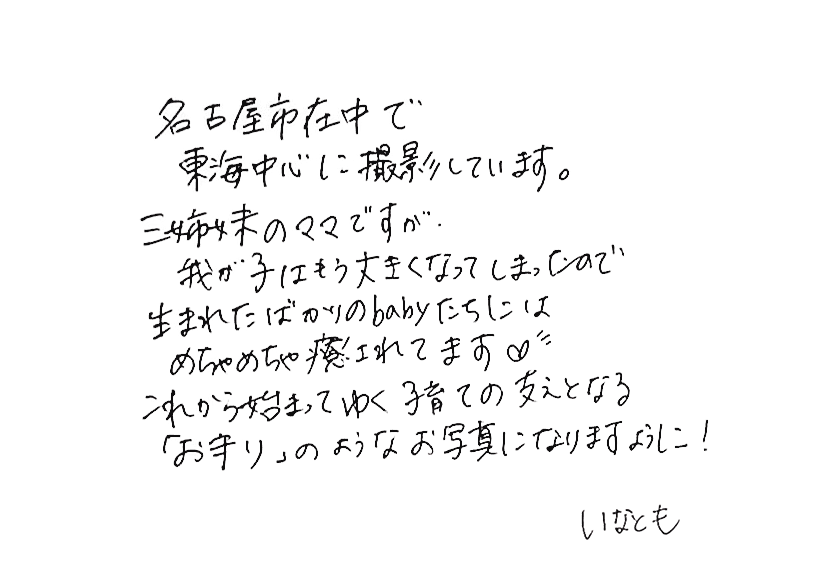 名古屋市在中で
東海中心に撮影しています。
三姉妹のママですが、
我が子はもう大きくなってしまったので
生まれたばかりのbabyたちには
めちゃめちゃ癒されてます♡
これから始まってゆく子育ての支えとなる
「お守り」のようなお写真になりますように！
いなとも